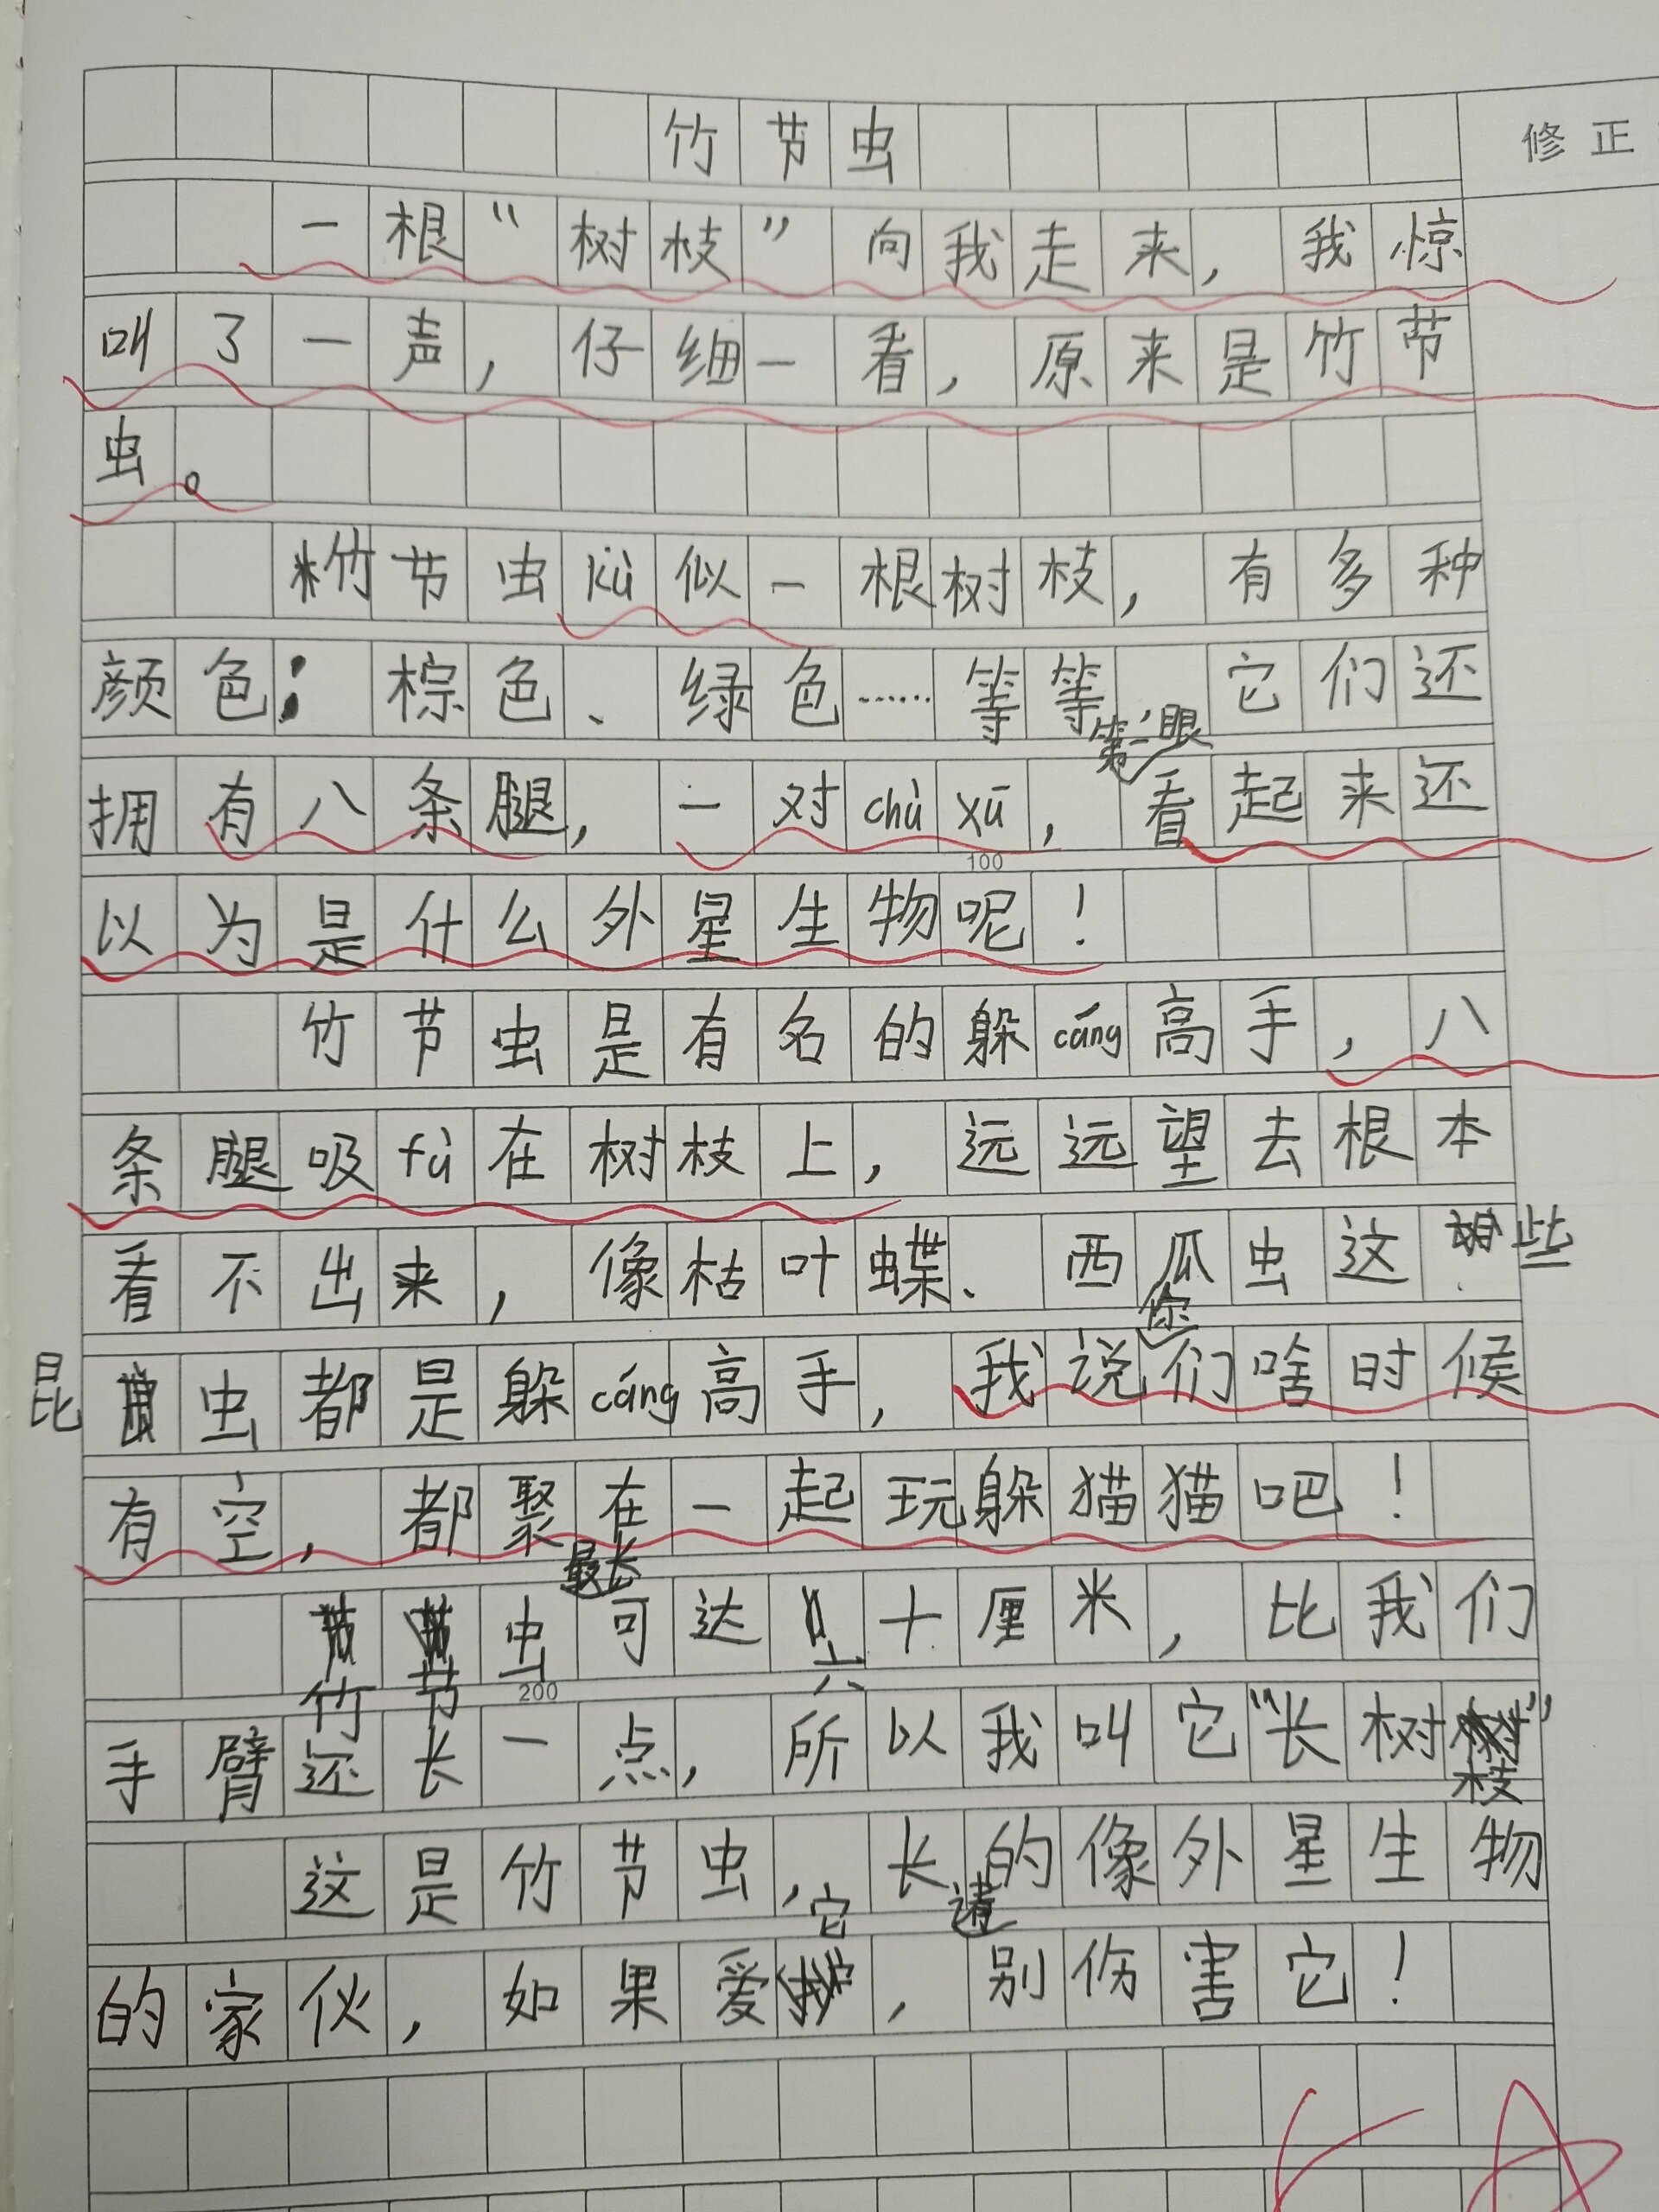 竹节虫
修正
一根“树枝”向我走来，我惊
叫了一声，仔细一看，原来是竹节
虫。
竹节虫kù似一根树枝，有多种
颜色：棕色、绿色……等等 它们还
拥有八条腿，一对chù xū，第一眼看起来还
100
以为是什么外星生物呢！
竹节虫是有名的躲cáng高手，八
条腿吸fù在树枝上，远远望去根本
看不出来，像枯叶蝶、西瓜虫这些
昆虫都是躲cáng高手，我说你们啥时候
有空，都聚在一起玩躲猫猫吧！
竹节虫最长可达六十厘米，比我们
200
手臂还长一点，所以我叫它“长树枝”
这是竹节虫，长的像外星生物
的家伙，如果爱它，请别伤害它！